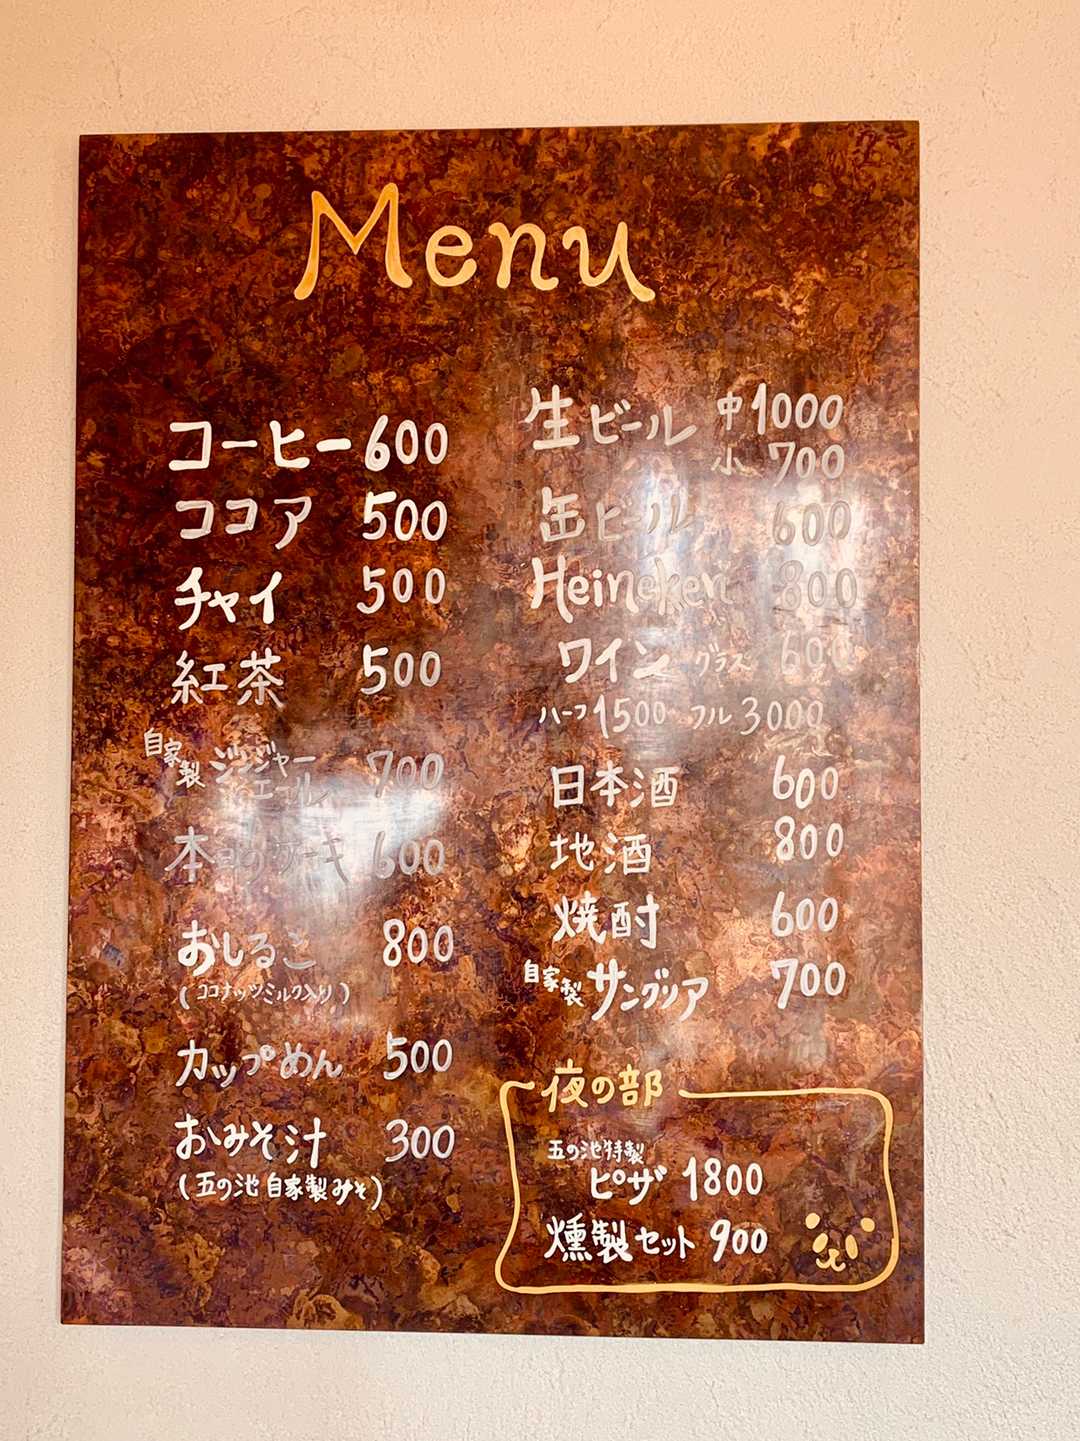 Menu
コーヒー 600
ココア 500
チャイ 500
紅茶 500
自家製 ジンジャーエール 700
本日のケーキ 600
おしるこ 800
(ココナッツミルク入り)
カップめん 500
おみそ汁 300
(五の池自家製みそ)
生ビール 中 1000
小 700
缶ビール 600
Heineken 800
ワイン グラス 600
ハーフ 1500 フル 3000
日本酒 600
地酒 800
焼酎 600
自家製 サングリア 700
夜の部
五の池特製
ピザ 1800
燻製セット 900